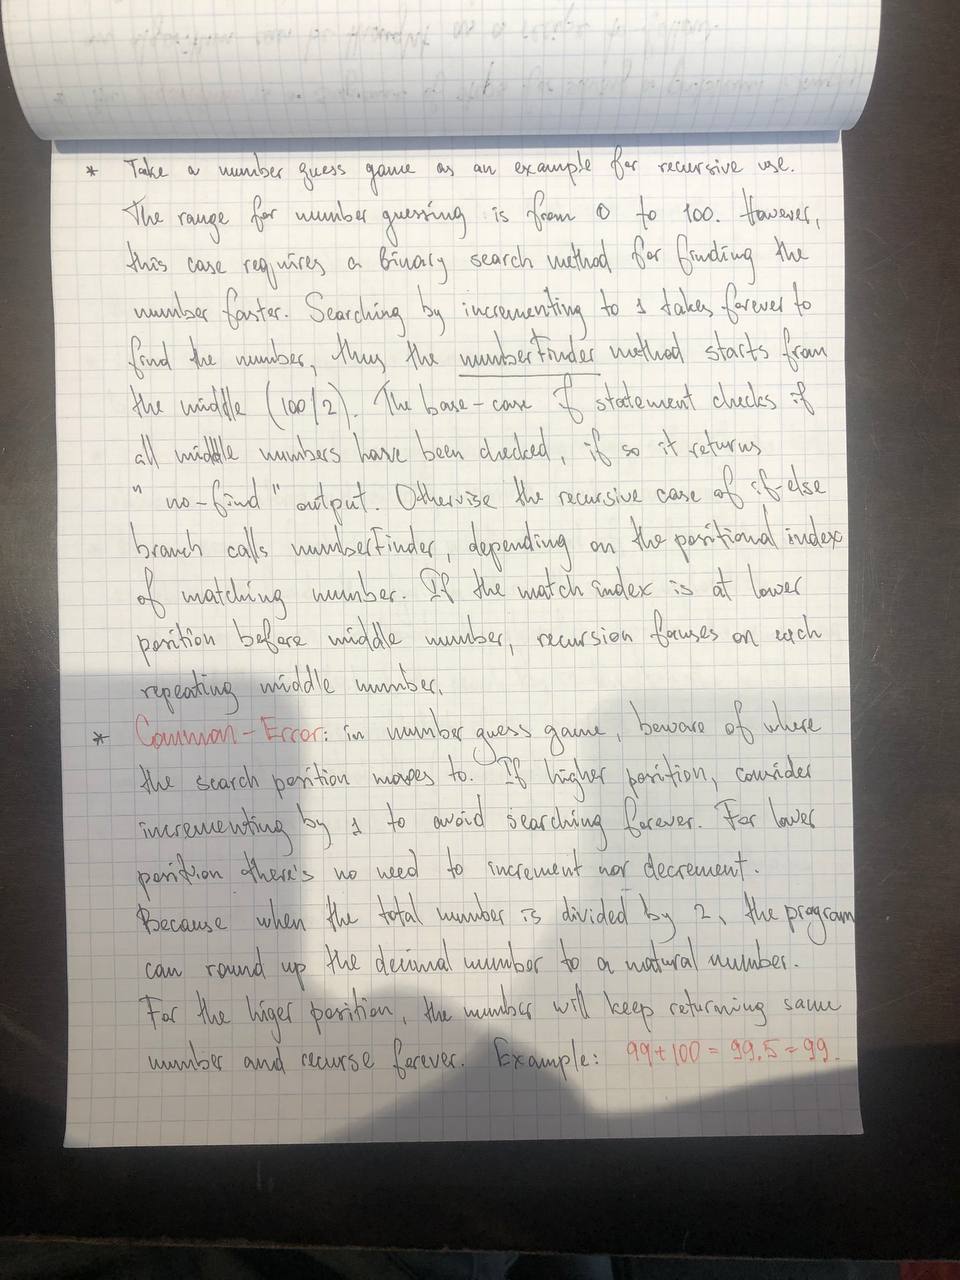 * Take a number guess game as an example for recursive use.
The range for number guessing is from 0 to 100. However,
this case requires a binary search method for finding the
number faster. Searching by incrementing to 1 takes forever to
find the number, thus the numberFinder method starts from
the middle (100/2). The base-case if statement checks if
all middle numbers have been checked, if so it returns
"no-find" output. Otherwise the recursive case of if-else
branch calls numberFinder, depending on the positional index
of matching number. If the match index is at lower
position before middle number, recursion focuses on each
repeating middle number.
* Common-Error: in number guess game, beware of where
the search position moves to. If higher position, consider
incrementing by 1 to avoid searching forever. For lower
position there's no need to increment nor decrement.
Because when the total number is divided by 2, the program
can round up the decimal number to a natural number.
For the higer position, the number will keep returning same
number and recurse forever. Example: 99+100 = 99.5 = 99.